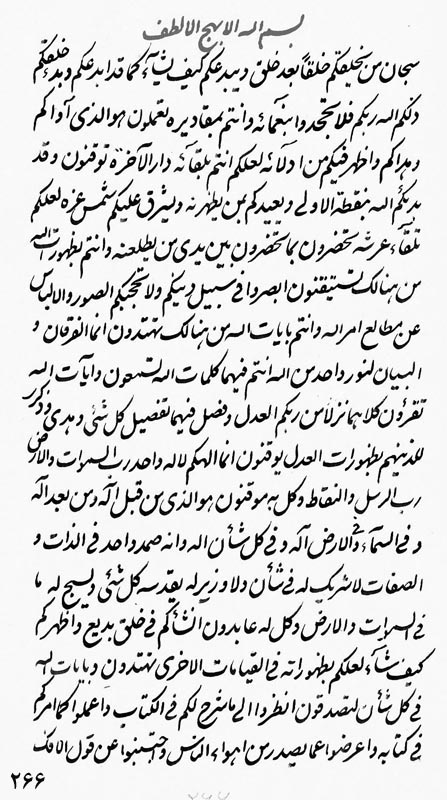 بسم الله الابهج الالطف
سبحان من يخلقكم خلقاً بعد خلق و يبدعكم كيف يشآء كما قد ابدعكم و بدء خلقكم
ذلكم الله ربكم فلا تجحدوا بنعمآئه و انتم بمقاديره تعملون هو الذى آواكم
و هداكم و اظهر فيكم من ادلآئه لعلكم انتم بلقآئه دار الآخرة توقنون و قد
بدئكم الله بنقطة الاولى و يعيدكم بمن يظهرنه و يشرق عليكم شمس عزه لعلكم
تلقآء عرشه تحضرون بما تحضرون بين يدى من يطلعنه و انتم بظهورات الله
من هنالك تستيقنون ابصروا فى سبيل دينكم و لا تحجبكم الصور و الالباس
عن مطالع امر الله و انتم بايات الله من هنالك تهتدون انما الفرقان و
البيان لنور واحد من الله انتم فيهما كلمات الله تسمعون و ايآت الله
تقرؤن كلاهما نزلا من ربكم العدل و فصل فيهما تفصيل كل شئ و هدى و ذكرى
للذينهم بظهورات العدل يوقنون انما الهكم لاله واحد رب السموات و الارض
رب الرسل و النقاط و كل به موقنون هو الذى من قبل آله و من بعد آله
و فى السمآء و فى الارض آله و فى كل شأن اله و انه صمد واحد فى الذات و
الصفات لا شريك له فى شأن و لا وزير له يقدسه كل شئ و يسبح له ما
فى السموات و الارض و كل له عابدون انشأكم فى خلق بديع و اظهركم
كيف شآء لعلكم بظهوراته فى القيامات الاخرى تهتدون و بايات الله
فى كل شأن لتصدقون انظروا الى ما شرح لكم فى الكتاب و اعملوا كما امركم
فى كتابه و اعرضوا عما يصدر من اهوآء الناس و اجتنبوا عن قول الافك
۲۶۶